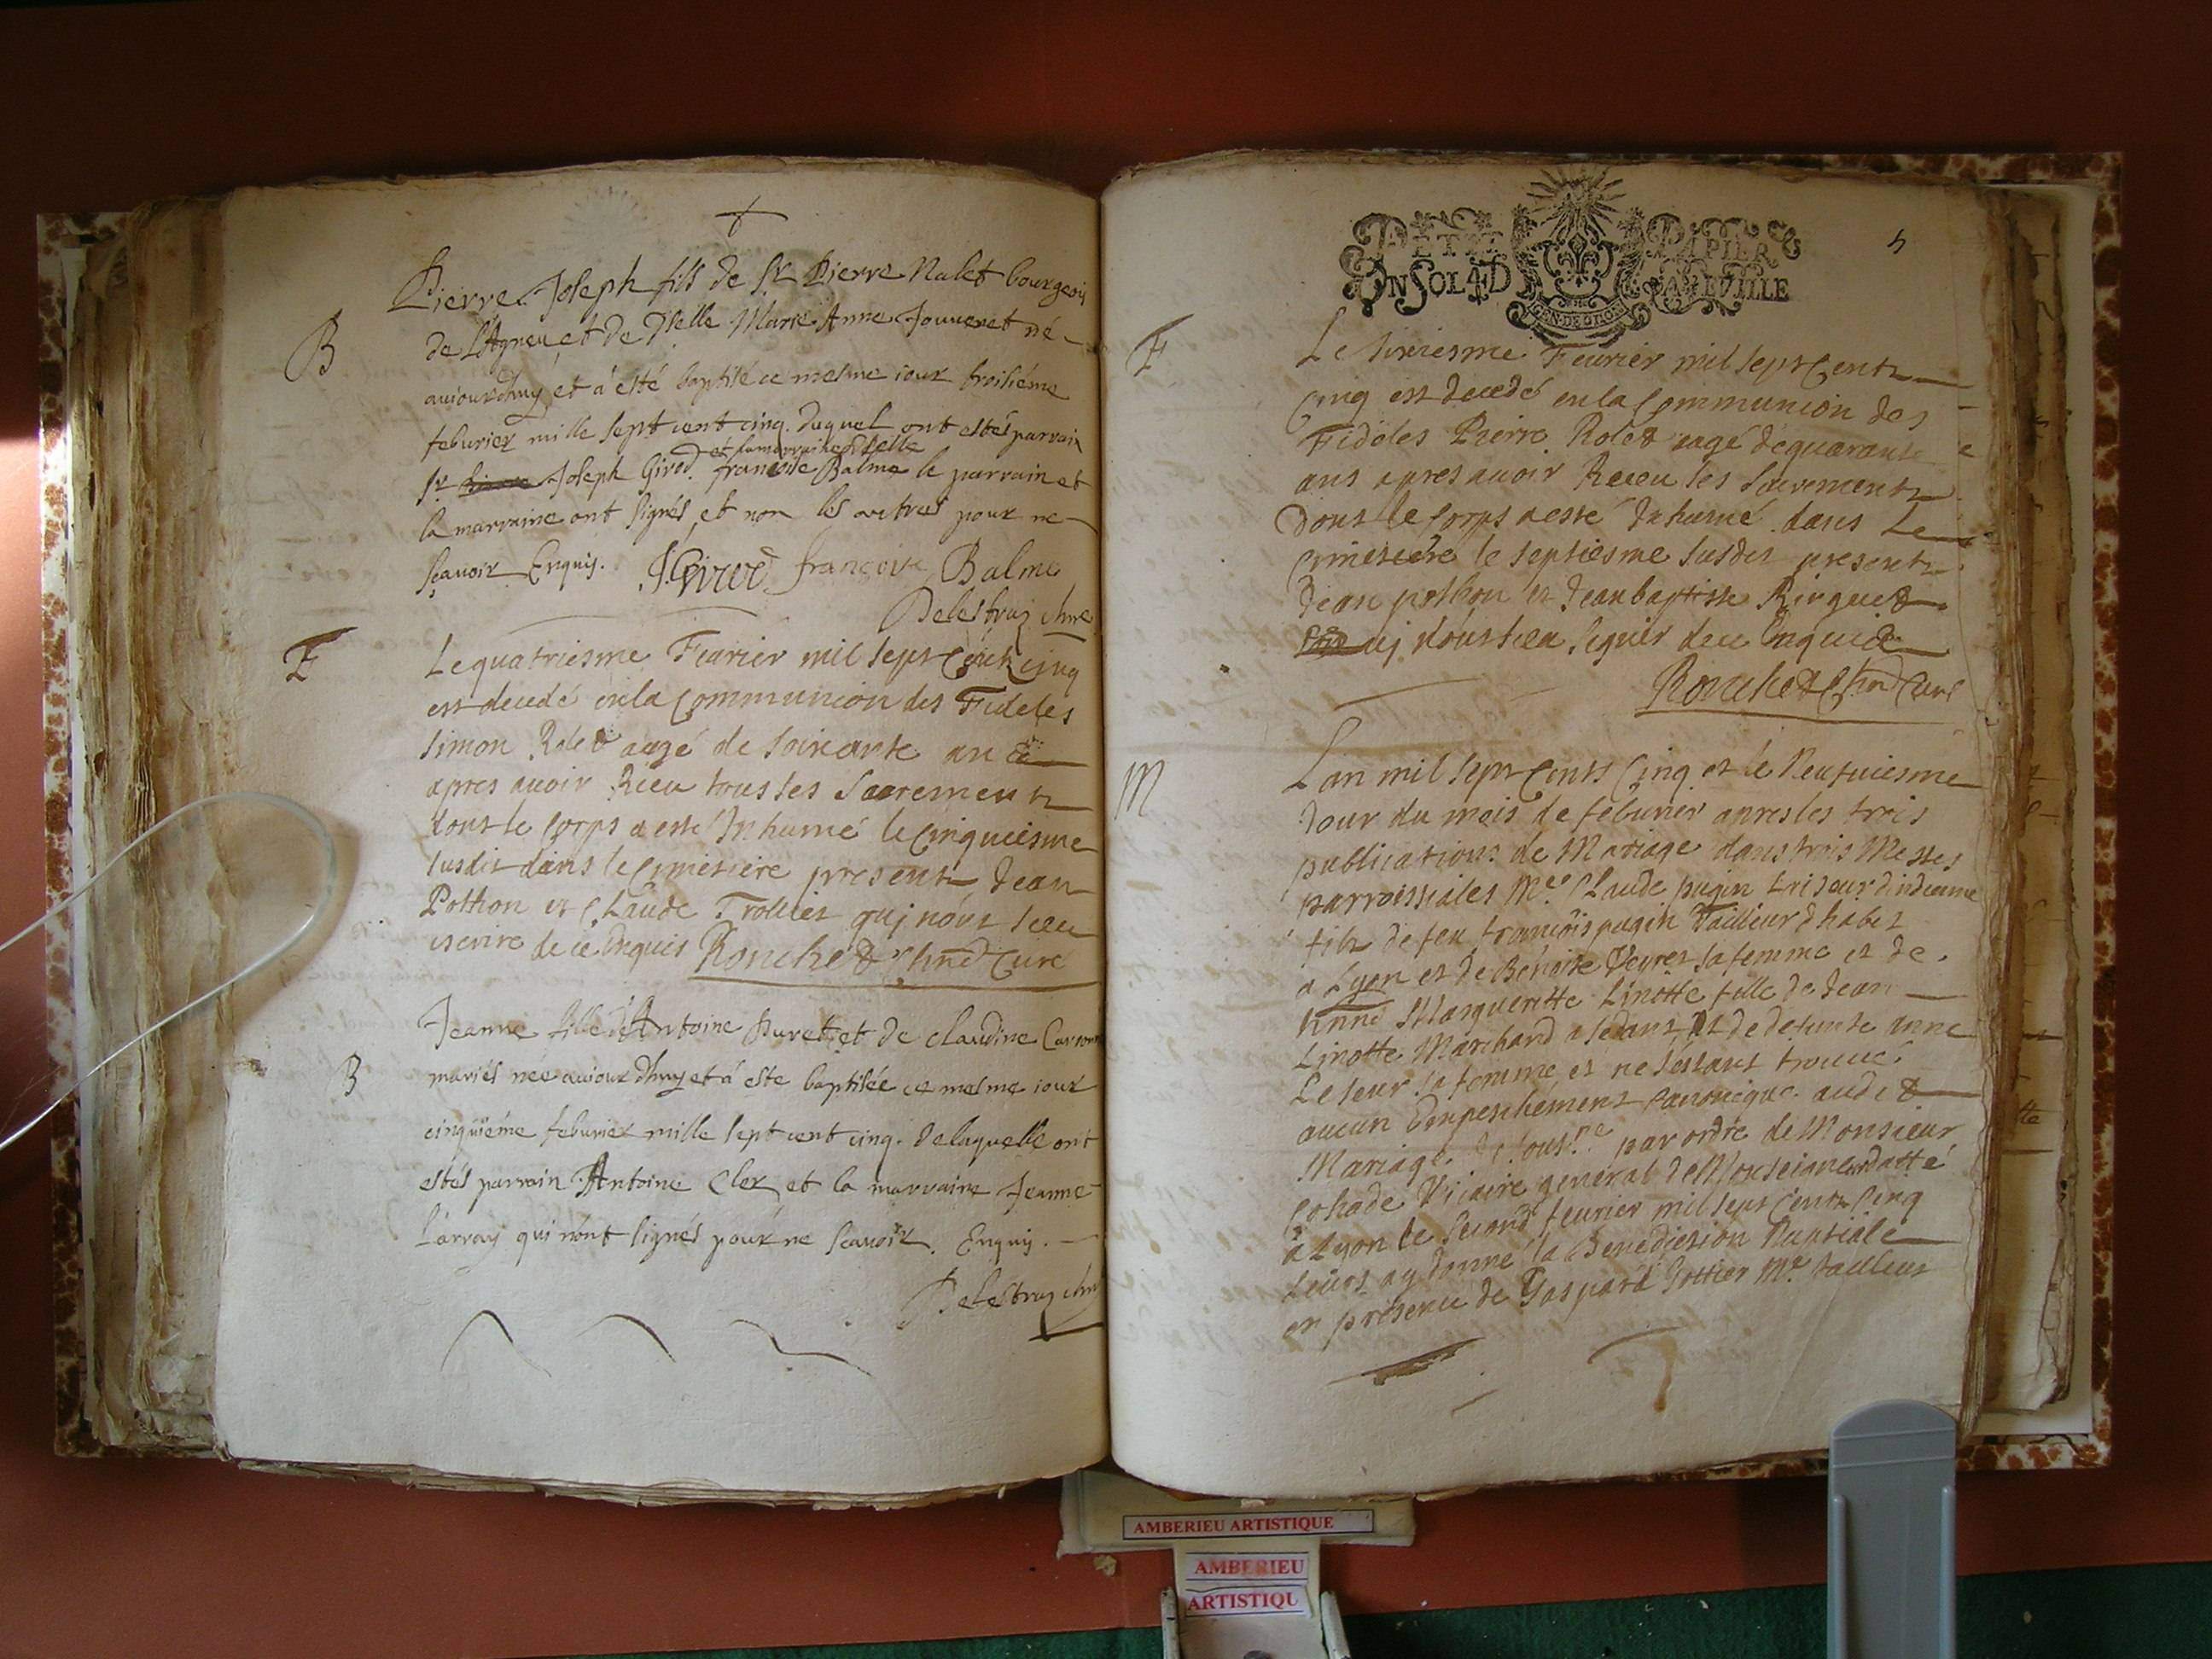 Pierre Joseph fils de Sr. Pierre Nalet bourgeois
B
de l'Agneu et de Dselle Marie Anne Jouueret né
auiourdhuy et à esté baptisé ce mesme iour troisiéme
feburier mille sept cent cinq. duquel ont estés parrain
et la marraine Dselle
Sr. Joseph Girod francoise Balme le parrain et
la marraine ont signés et non les autres pour ne
sçauoir Enquis. J. Girod françoise Balme
Delestraz
F
Le quatriesme Feurier mil sept Cent cinq
est decedé en la Communion des Fideles
simon Rolet aagé de soixante an
apres auoir Receu tous les Sacrements
dont le Corps a esté Inhumé le Cinquiesme
susdit dans le Cimetiere presents Jean
Pothon et Claude Trollies quj nont sceu
escrire de ce Enquis Ronchet Curé
Jeanne fille d'Antoine Puret et de claudine
B
mariés née auiourdhuy et à este baptisée ce mesme iour
cinquiéme feburier mille sept cent cinq. de laquelle ont
estés parrain Antoine Cler et la marraine Jeanne
Larray qui n'ont signés pour ne scauoir. Enquis.
Delestraz
PETIT PAPIER
UN SOL 4 D LA FEUILLE
GEN DE DIJON
5
F
Le sixiesme Feurier mil sept Cents
Cinq est decedé en la Communion des
Fideles Pierre Rolet aagé de quarante
ans apres auoir Receu les Sacrements
dont le Corps a esté Inhumé dans Le
Cimetiere le septiesme susdit presents
Jean pothon et Jean baptiste Ringuet
quj n'ont sceu signer de ce Enquis
Ronchet Curé
M
L'an mil sept Cents Cinq et le Neufuiesme
Jour du mois de feburier apres les trois
publications de Mariage dans trois Messes
parroissiales Me. Claude pugin d'indienne
fils de feu francois pugin Tailleur d'habit
a Lyon et de Benoite Veyret sa femme et de
Anne Margueritte Linotte fille de Jean
Linotte Marchand a sedant, et de defunte anne
Leseur sa femme et ne s'estant trouué
aucun Empeschement canonique audit
Mariage Je sous.ne par ordre de Monsieur
Cohade Vicaire general de Monseigneur datté
à Lyon le second feurier mil sept Cents Cinq
Leurs ay donné la Benediction Nuptiale
en presence de Gaspard Gottier Me. tailleur
AMBERIEU ARTISTIQUE
AMBERIEU
ARTISTIQU